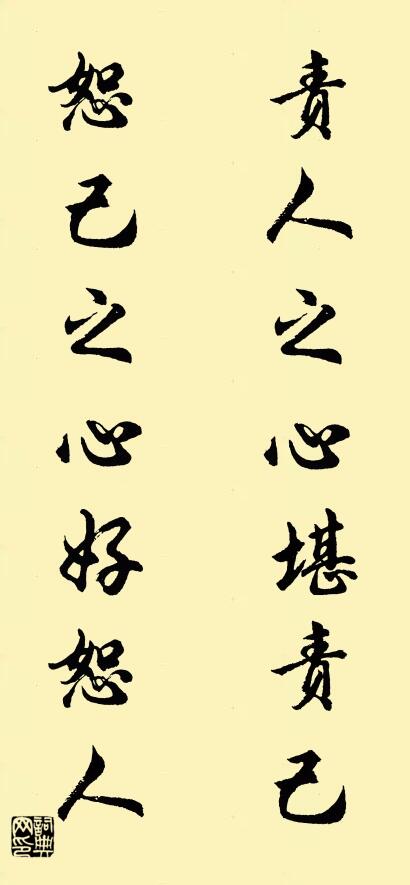 责人之心堪责己
恕己之心好恕人
詞典网印